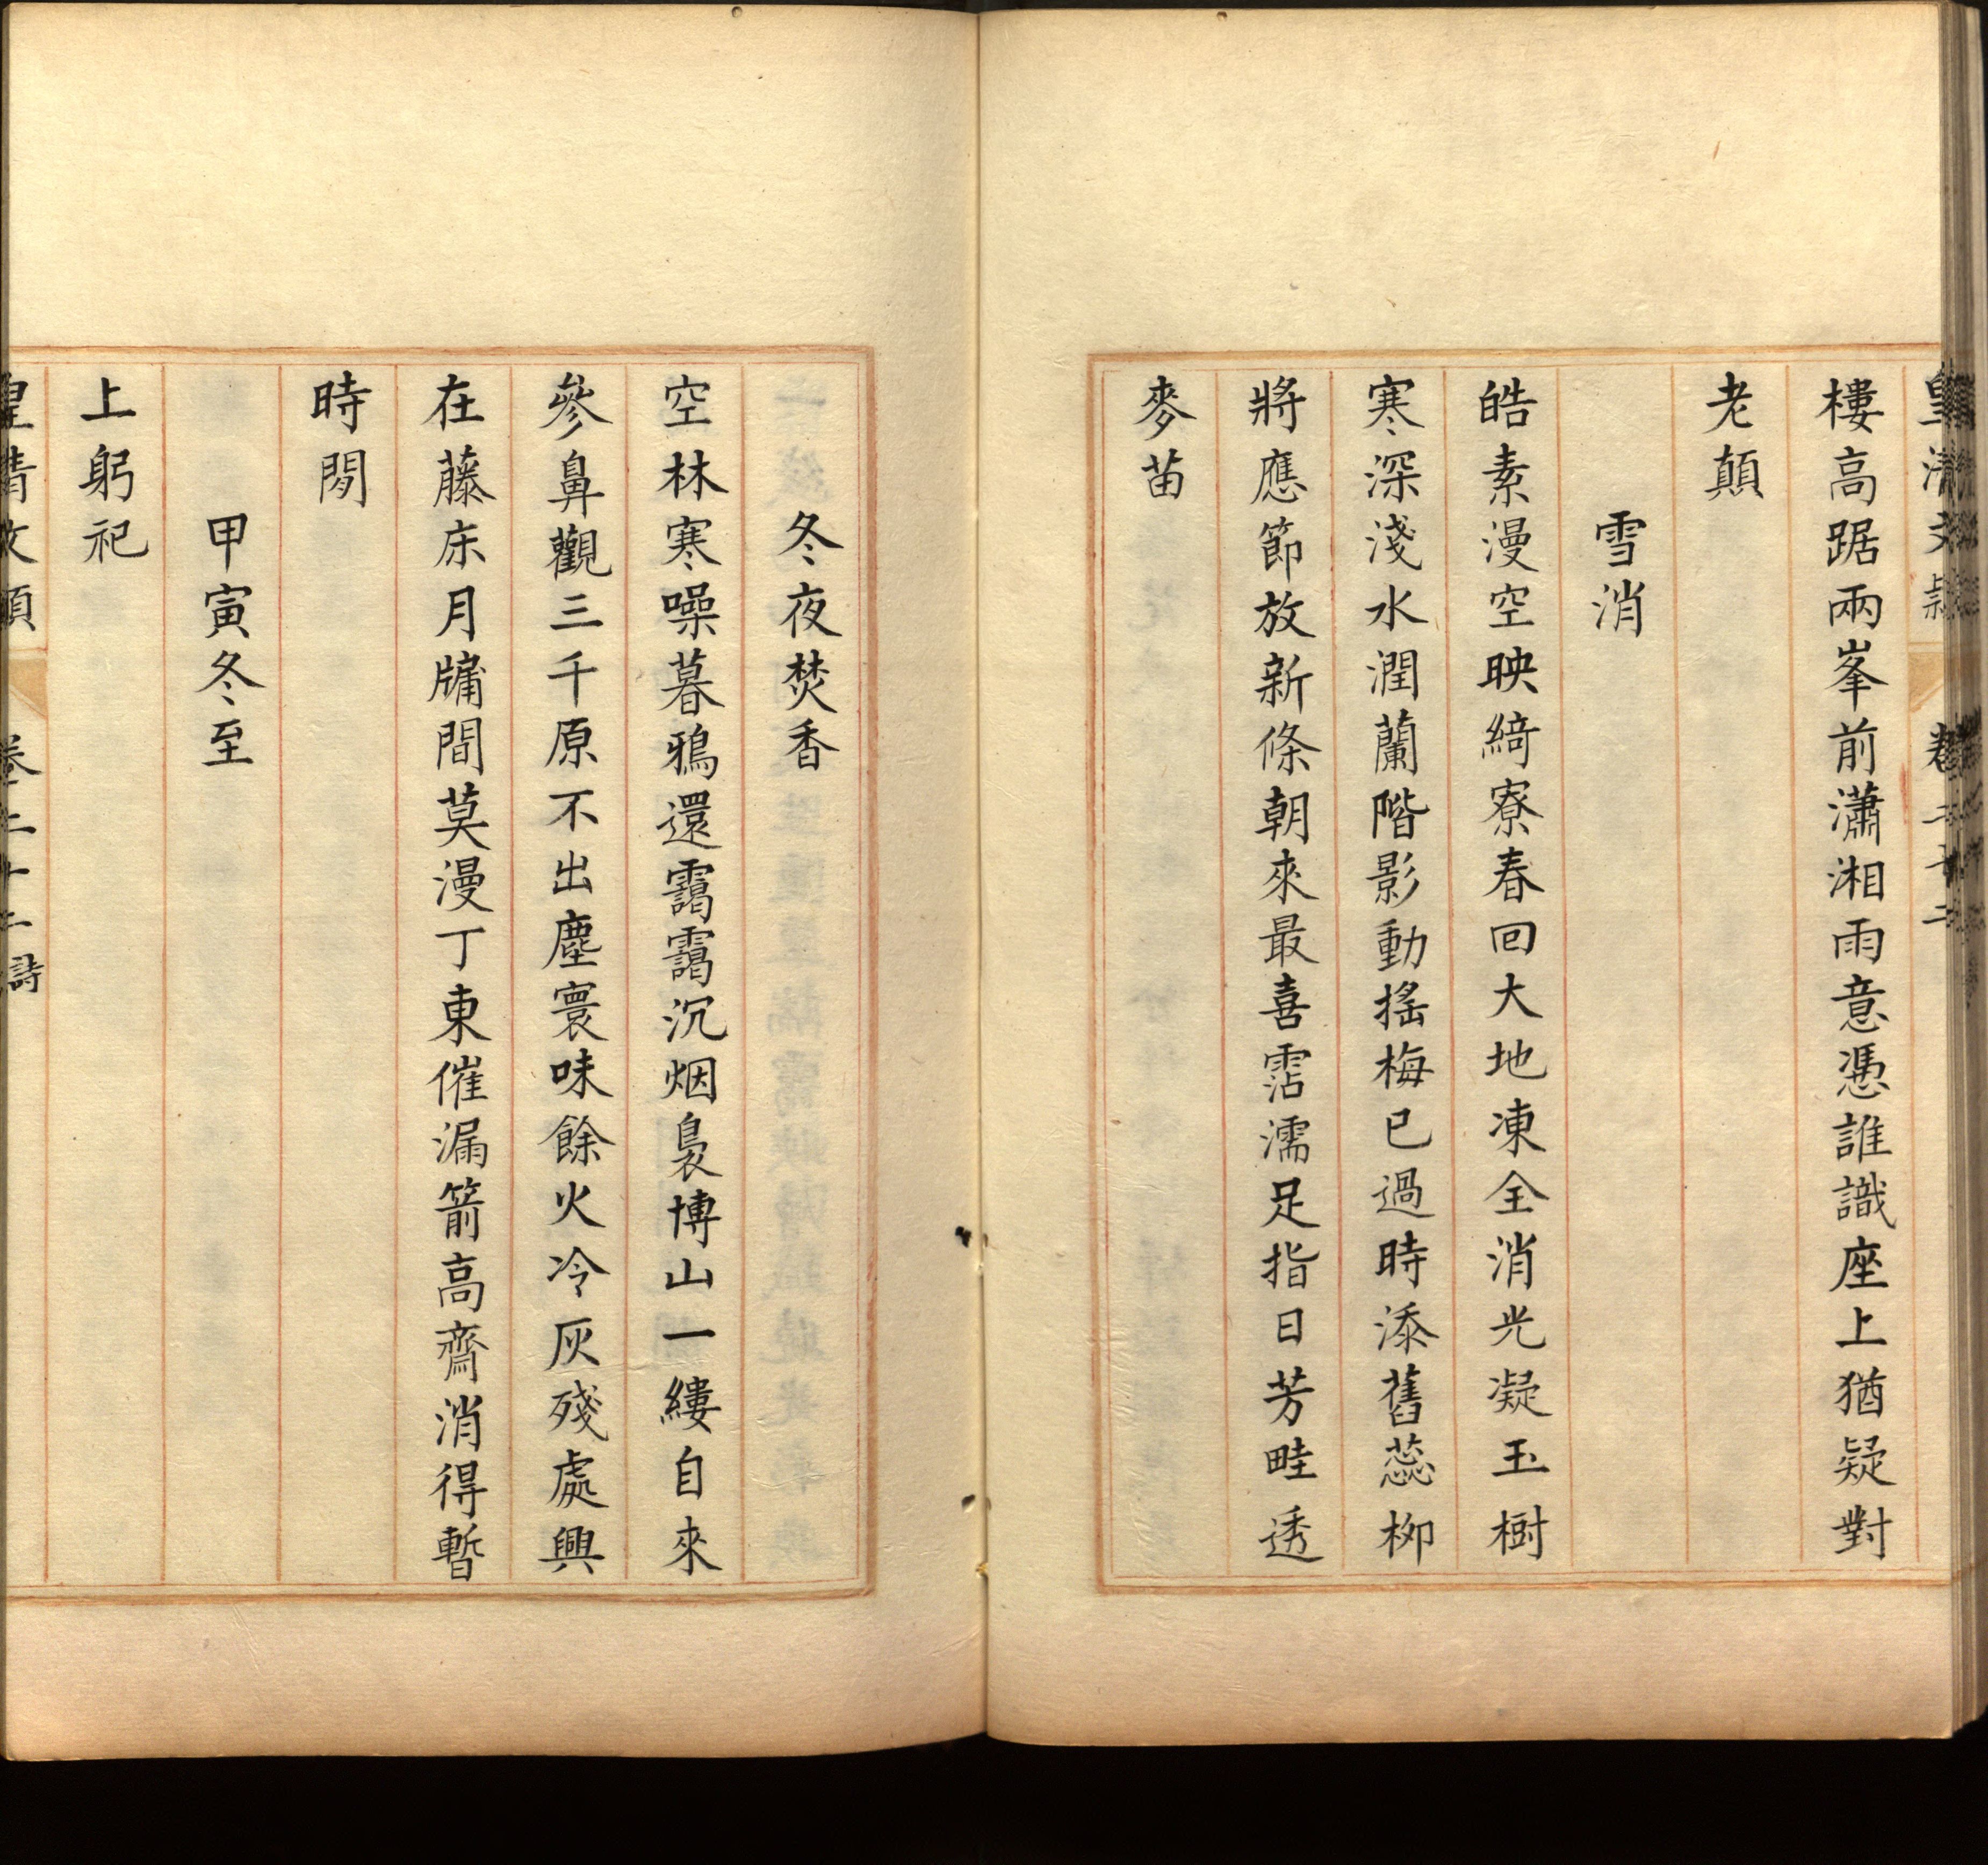 皇清文
卷二十二
樓高踞兩峯前瀟湘雨意憑誰識座上猶疑對
老顛
雪消
皓素漫空映綺寮春回大地凍全消光凝玉樹
寒深淺水潤蘭階影動搖梅已過時添舊蕊柳
將應節放新條朝來最喜霑濡足指日芳畦透
麥苗
冬夜焚香
空林寒噪暮鴉還靄靄沉烟裊博山一縷自來
參鼻觀三千原不出塵寰味餘火冷灰殘處興
在藤床月牗間莫漫丁東催漏箭高齋消得暫
時閒
甲寅冬至
上躬祀
皇清文穎
卷二十二詩